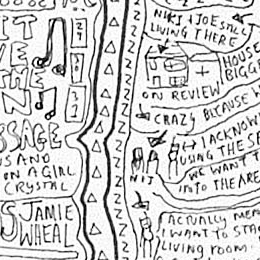 IT
VE
THE
N
SSAGE
US AND
ON A GIRL
CRYSTAL
S JAMIE
WHEAL
Z
Z
Z
Z
Z
Z
Z
Z
Z
Z
Z
NIKI + JOE STILL
LIVING THERE
HOUSE
BIGG
ON REVIEW
CRAZY BECAUSE W
I ACKNOW
USING THE SP
WE WANT T
INTO THE ARE
NIT
ACTUALLY MEM
I WANT TO STA
LIVING ROOM.